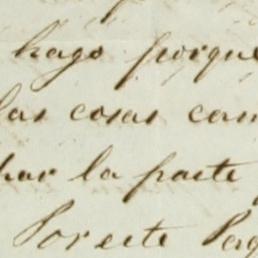 hago porque
las cosas com
por la parte
Por este Paq